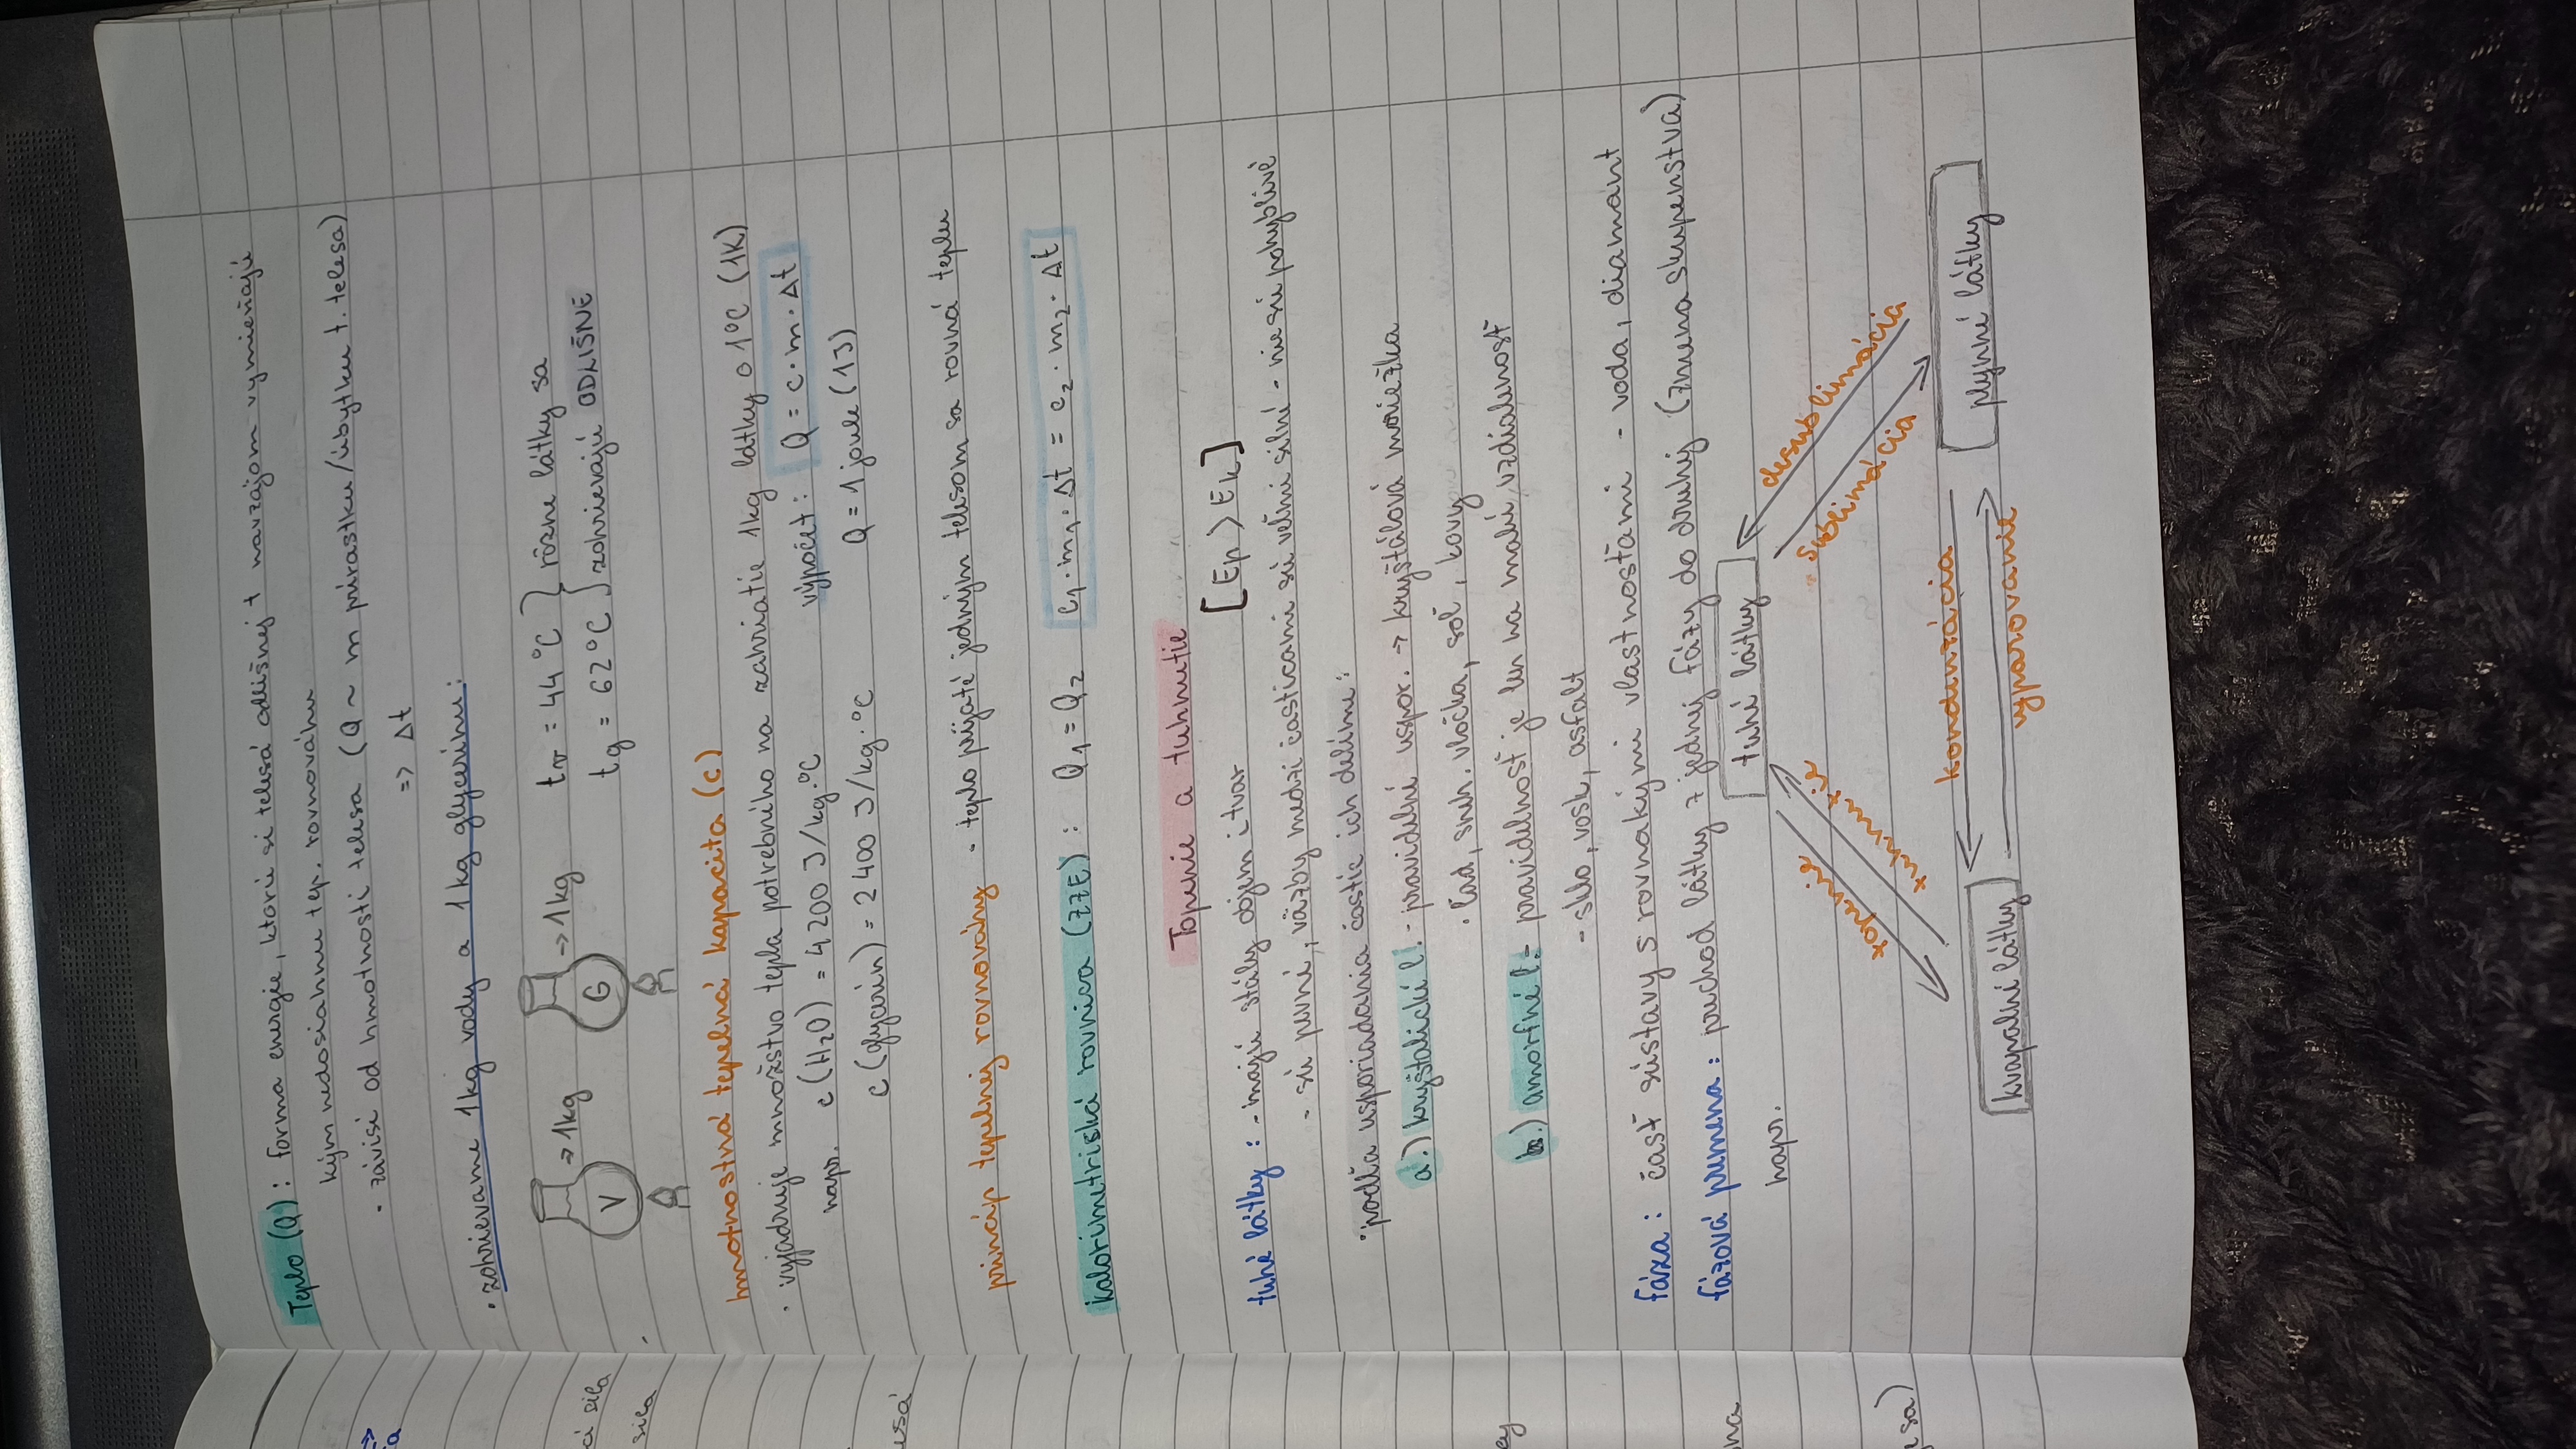 Teplo (Q): forma energie, ktorú si telesá odlišnej t navzájom vymieňajú
kým nedosiahnu tep. rovnováhu
• závisí od hmotnosti telesa (Q ~ m prírastku/úbytku t. telesa)
=> Δt
• zohrievame 1kg vody a 1kg glycerínu:
→1kg →1kg tv = 44 °C } rôzne látky sa
V G tg = 62°C } zohrievajú ODLIŠNE
hmotnostná tepelná kapacita (c)
• vyjadruje množstvo tepla potrebného na zahriatie 1kg látky o 1°C (1K)
napr. c (H₂O) = 4 200 J/kg.°C výpočet: Q = c·m·Δt
c (glycerín) = 2 400 J/kg·°C Q = 1 joule (1J)
princíp tepelnej rovnováhy - teplo prijaté jedným telesom sa rovná teplu
kalorimetriská rovnica (ZZE): Q₁ = Q₂ c₁·m₁·Δt = c₂·m₂·Δt
Topenie a tuhnutie
tuhé látky: - majú stály objem i tvar [Ep > Ek]
- sú pevné, väzby medzi časticami sú veľmi silné - nie sú pohyblivé
• podľa usporiadania častíc ich delíme:
a.) kryštalické l. - pravidelné uspor. → kryštálová mriežka
• ľad, sneh. vločka, soľ, kovy
b.) amorfné l. - pravidelnosť je len na malú vzdialenosť
- sklo, vosk, asfalt
fáza: časť sústavy s rovnakými vlastnosťami - voda, diamant
fázová premena: prechod látky z jednej fázy do druhej (zmena skupenstva)
tuhé látky
napr.
topenie tuhnutie sublimácia desublimácia
kondenzácia
kvapalné látky plynné látky
vyparovanie
ci sila
sila
esá
ey
na
esa)